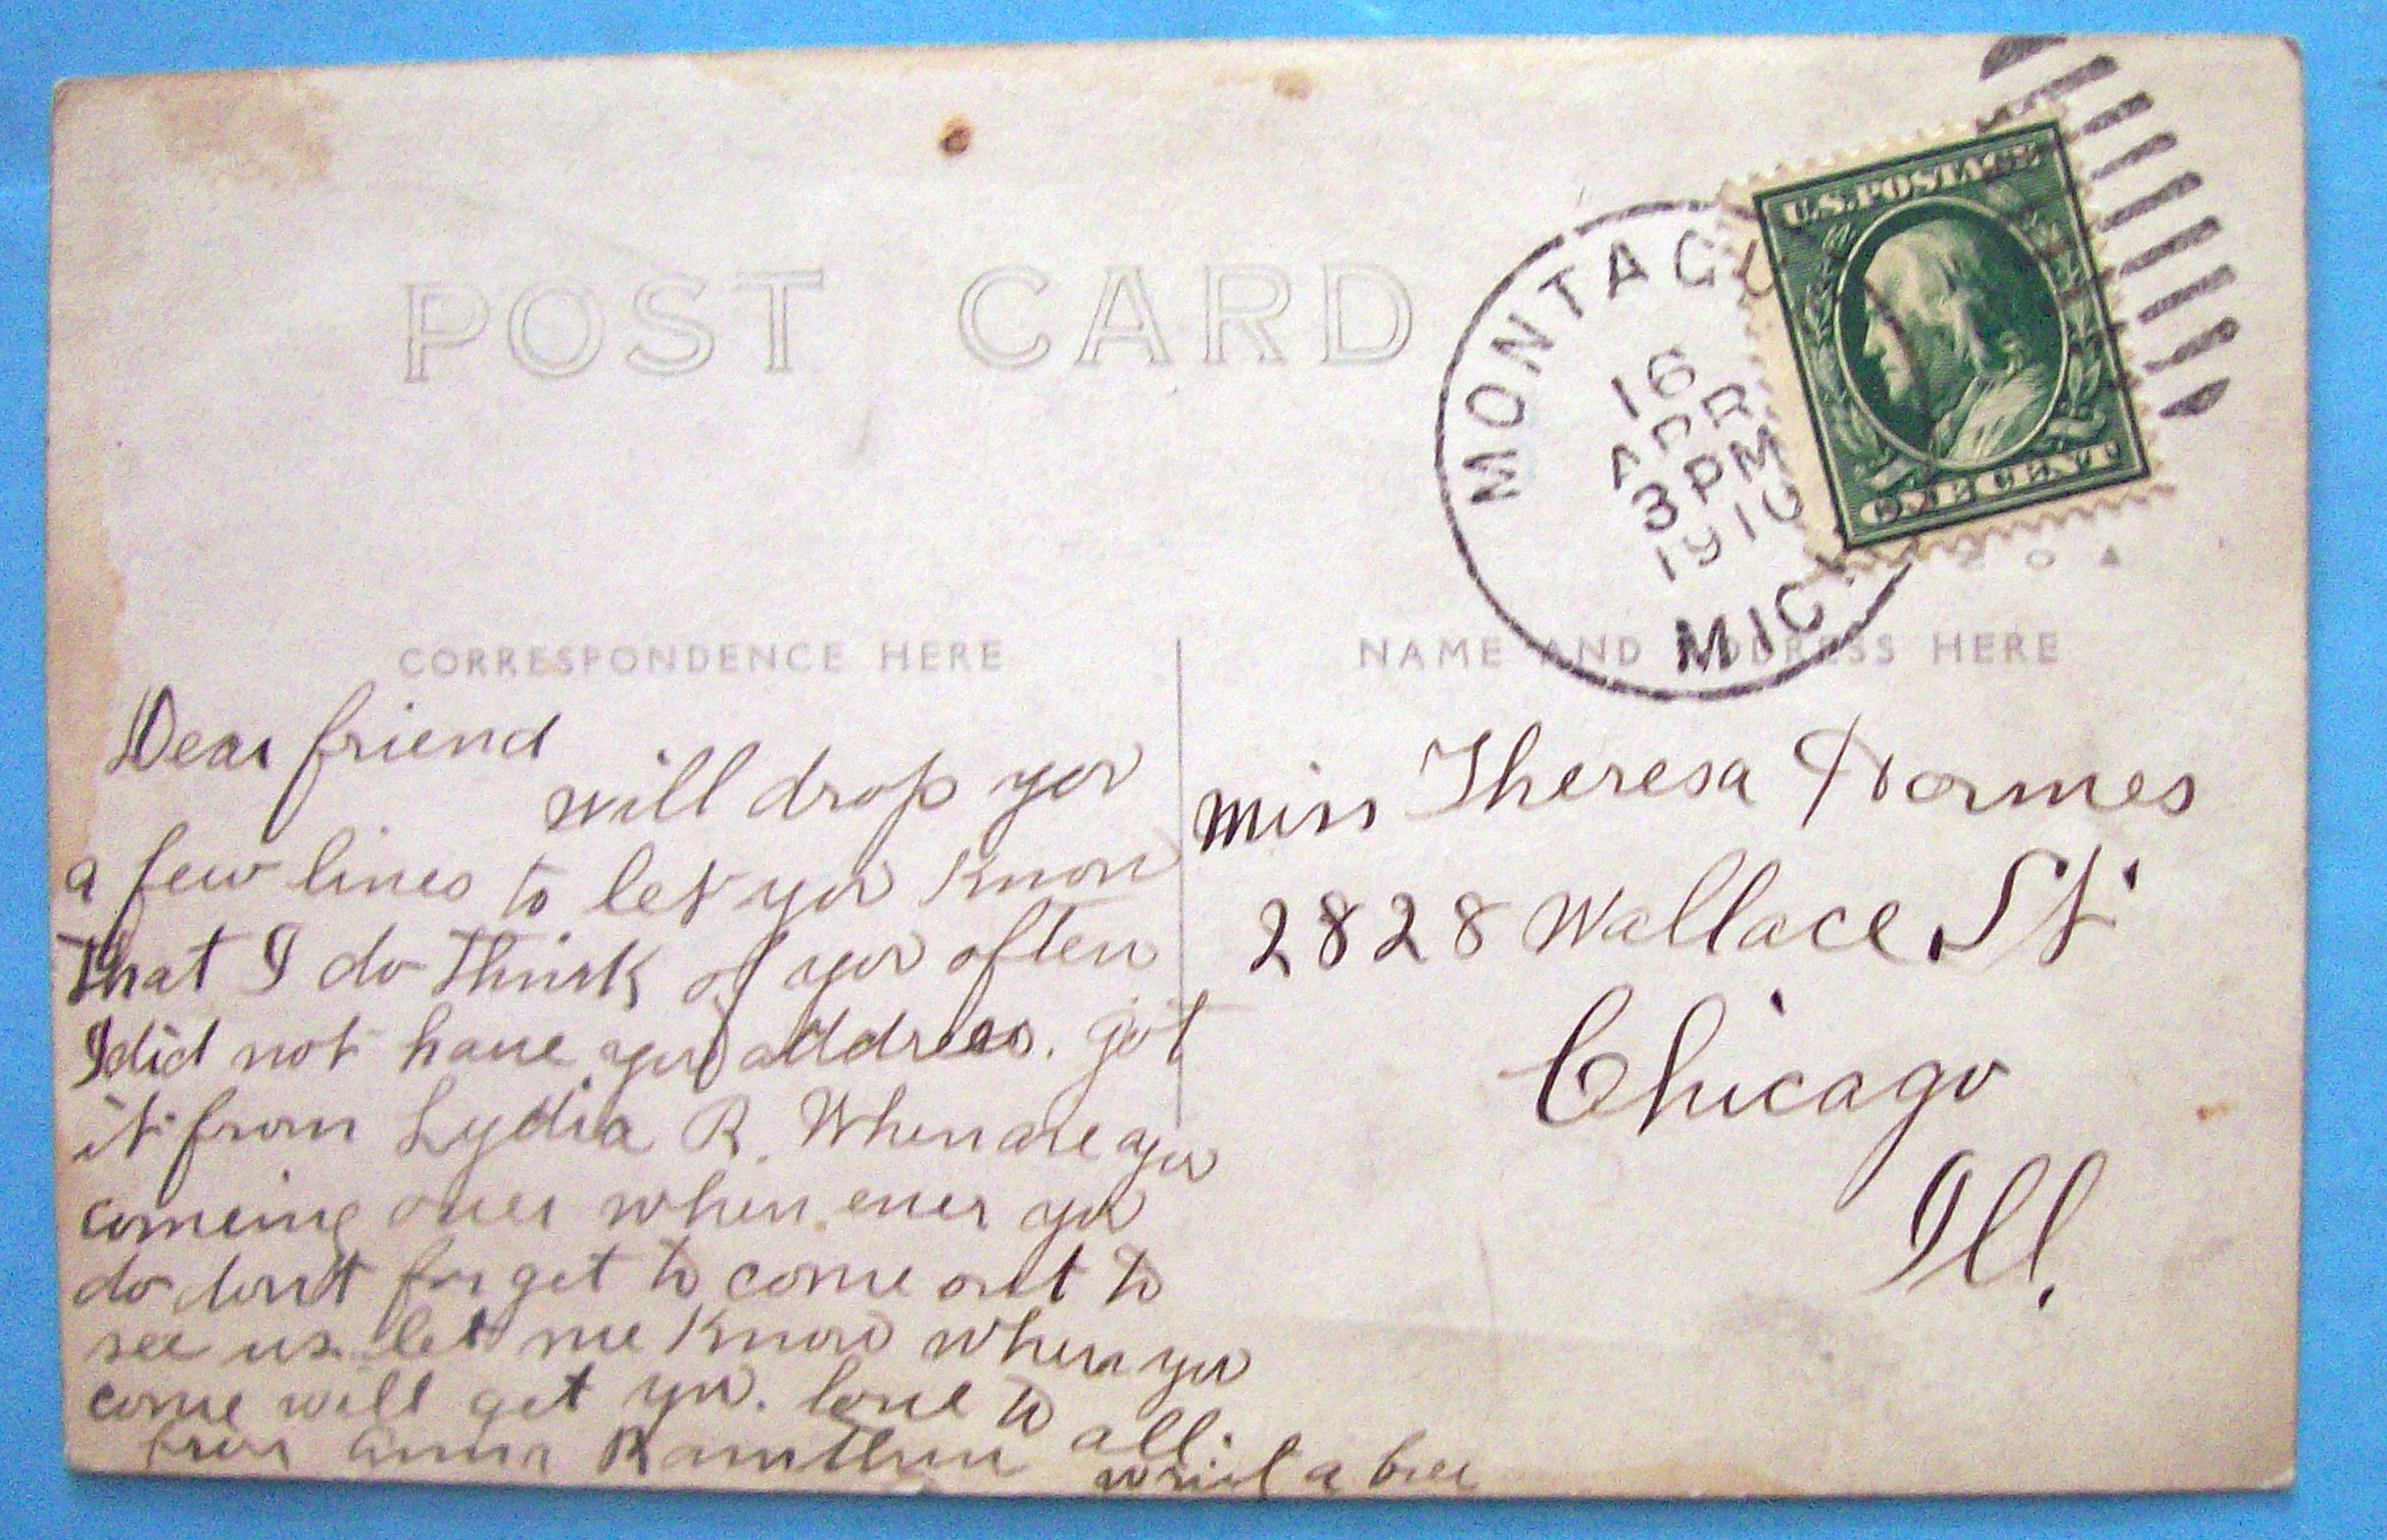 POST CARD
U.S. POSTAGE
ONE CENT
MONTAGU
16
APR
3 PM
1910
MICH
CORRESPONDENCE HERE
NAME AND ADDRESS HERE
Dear friend
will drop you
a few lines to let you know
that I do think of you often
I did not have your address. got
it from Lydia R. When are you
comeing over when ever you
do don't forget to come out to
see us. let me know when you
come will get you. love to all.
from Anna
write a
Miss Theresa Hormes
2828 Wallace St.
Chicago
Ill.